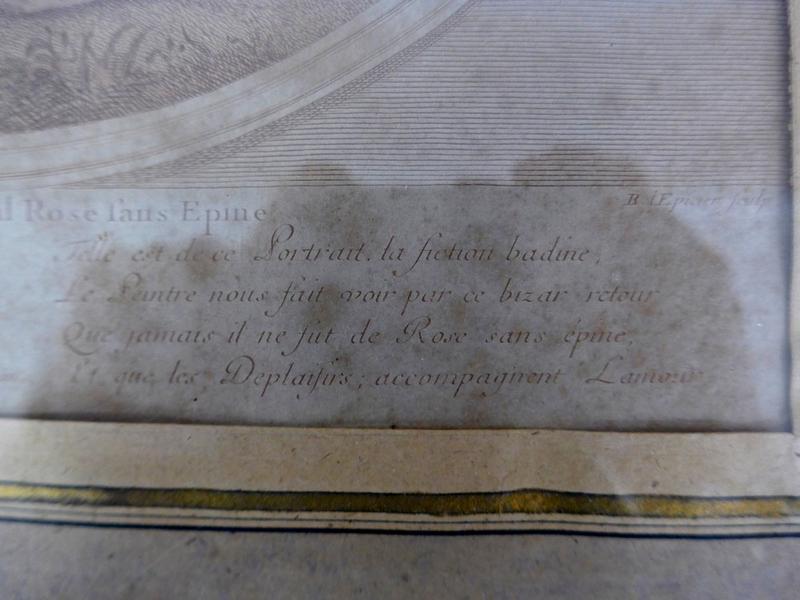 Rose sans Epine
B. lEpicier Sculp
Telle est de ce Portrait, la fiction badine,
Le Peintre nous fait voir par ce bizar retour
Que jamais il ne fut de Rose sans épine,
Et que les Deplaisirs, accompagnent Lamour